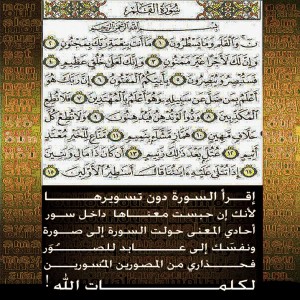 سُورَةُ القَلَمِ
بِسْمِ اللَّهِ الرَّحْمَٰنِ الرَّحِيمِ
نٓ وَالْقَلَمِ وَمَا يَسْطُرُونَ ١ مَا أَنتَ بِنِعْمَةِ رَبِّكَ بِمَجْنُونٍ ٢
وَإِنَّ لَكَ لَأَجْرًا غَيْرَ مَمْنُونٍ ٣ وَإِنَّكَ لَعَلَىٰ خُلُقٍ عَظِيمٍ ٤
فَسَتُبْصِرُ وَيُبْصِرُونَ ٥ بِأَييِّكُمُ الْمَفْتُونُ ٦ إِنَّ رَبَّكَ هُوَ
أَعْلَمُ بِمَن ضَلَّ عَن سَبِيلِهِ وَهُوَ أَعْلَمُ بِالْمُهْتَدِينَ ٧ فَلَا تُطِعِ
الْمُكَذِّبِينَ ٨ وَدُّوا لَوْ تُدْهِنُ فَيُدْهِنُونَ ٩ وَلَا تُطِعْ كُلَّ
حَلَّافٍ مَّهِينٍ ١٠ هَمَّازٍ مَّشَّاءٍ بِنَمِيمٍ ١١ مَّنَّاعٍ لِّلْخَيْرِ مُعْتَدٍ
أَثِيمٍ ١٢ عُتُلٍّ بَعْدَ ذَٰلِكَ زَنِيمٍ ١٣ أَن كَانَ ذَا مَالٍ وَبَنِينَ
١٤ إِذَا تُتْلَىٰ عَلَيْهِ آيَاتُنَا قَالَ أَسَاطِيرُ الْأَوَّلِينَ ١٥
إقرأ السورة دون تسويرها
لأنك إن حبست معناها داخل سور
أحادي المعنى حولت السورة إلى صورة
ونفسك إلى عابد للصُوَر
فحذاري من المصورين المُسورين
لكلمات الله !